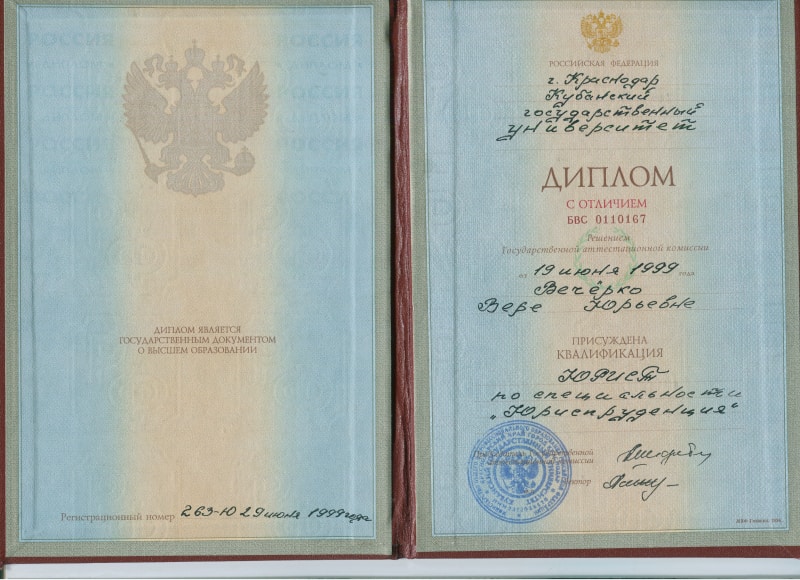 ДИПЛОМ ЯВЛЯЕТСЯ
ГОСУДАРСТВЕННЫМ ДОКУМЕНТОМ
О ВЫСШЕМ ОБРАЗОВАНИИ
Регистрационный номер 263-Ю 29 июня 1999 года
РОССИЙСКАЯ ФЕДЕРАЦИЯ
г. Краснодар
Кубанский
государственный
университет
ДИПЛОМ
С ОТЛИЧИЕМ
БВС 0110167
Решением
Государственной аттестационной комиссии
от 19 июня 1999 года
Вечёрко
Вере Юрьевне
ПРИСУЖДЕНА
КВАЛИФИКАЦИЯ
ЮРИСТ
по специальности
„Юриспруденция"
Государственной
комиссии